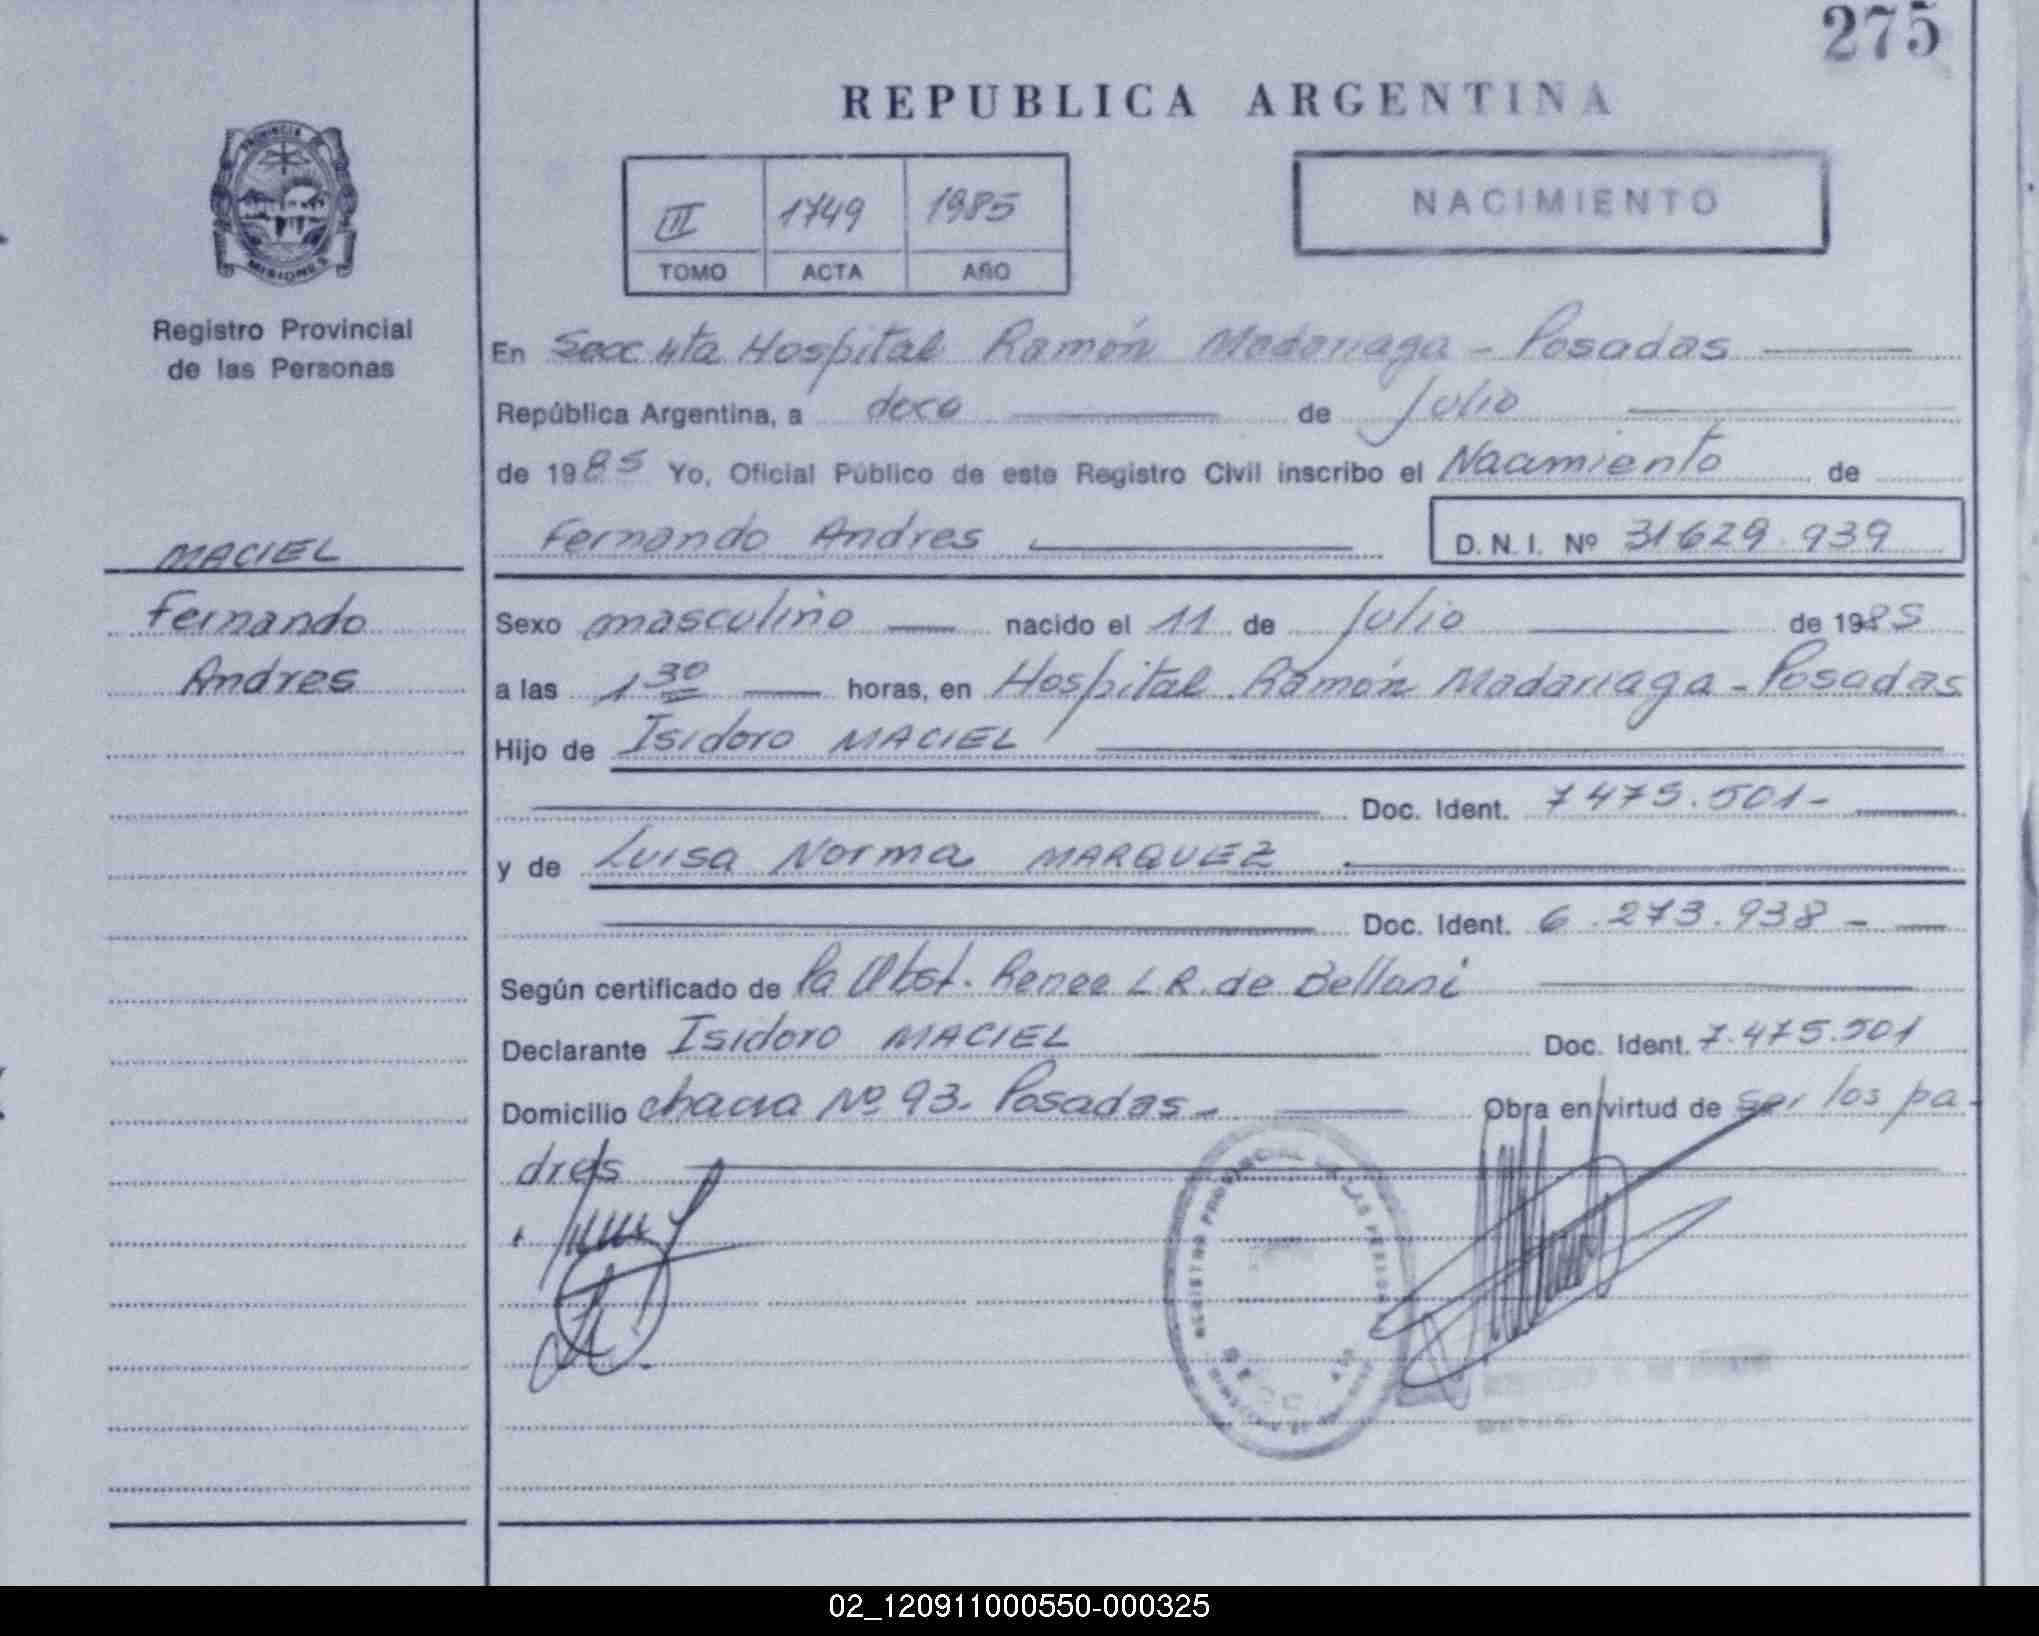 275
REPUBLICA ARGENTINA
PROVINCIA
MISIONES
Registro Provincial
de las Personas
III 1749 1985
TOMO ACTA AÑO
NACIMIENTO
En Secc 4ta Hospital Ramón Madariaga - Posadas
República Argentina, a doce de Julio
de 1985 Yo, Oficial Público de este Registro Civil inscribo el Nacimiento de
Fernando Andres D.N.I. Nº 31629.939
MACIEL
Fernando
Andres
Sexo masculino nacido el 11 de Julio de 1985
a las 1 30 horas, en Hospital Ramón Madariaga - Posadas
Hijo de Isidoro MACIEL
Doc. Ident. 7475.501-
y de Luisa Norma MARQUEZ
Doc. Ident. 6.273.938-
Según certificado de la Obst. Renee L R. de Bellani
Declarante Isidoro MACIEL Doc. Ident. 7.475.501
Domicilio chacra Nº 93. Posadas- Obra en virtud de ser los pa-
dres
REGISTRO PROVINCIAL DE LAS PERSONAS
02_120911000550-000325